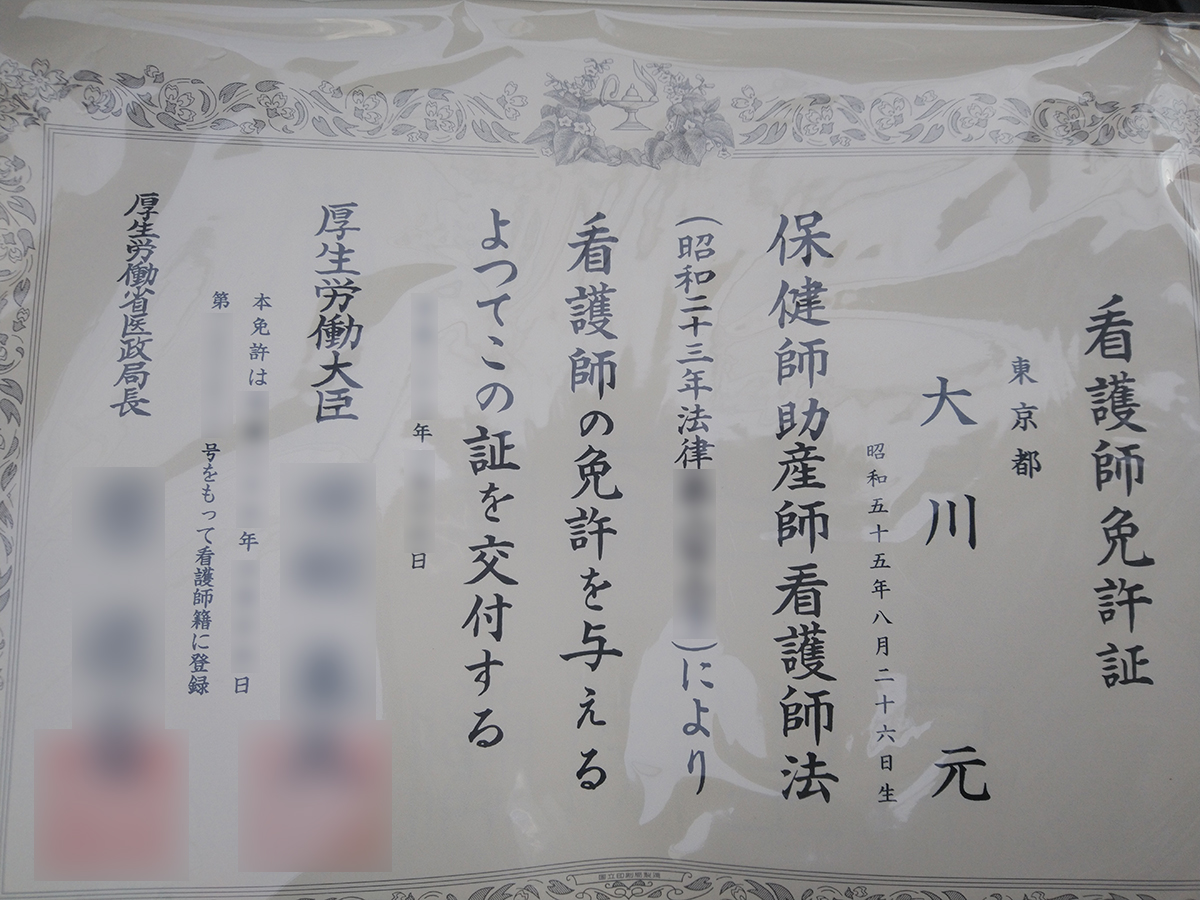 看護師免許証
東京都
大川 元
昭和五十五年八月二十六日生
保健師助産師看護師法
(昭和二十三年法律)により
看護師の免許を与える
よつてこの証を交付する
年 日
厚生労働大臣
本免許は 年 日
第 号をもって看護師籍に登録
厚生労働省医政局長
国立印刷局製造